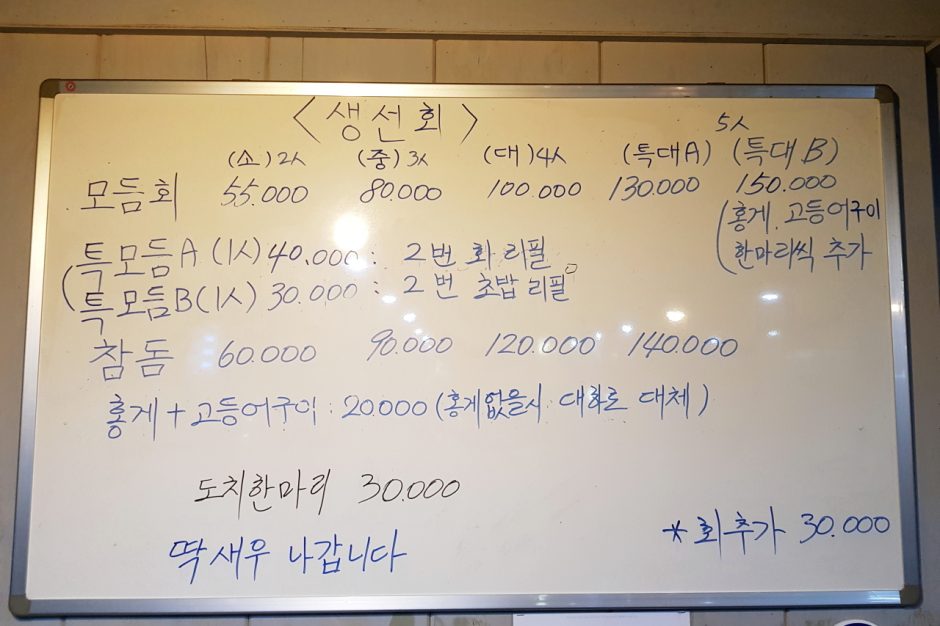 <생선회>
5人
(소)2人 (중)3人 (대)4人 (특대A) (특대B)
모듬회 55.000 80.000 100.000 130.000 150.000
(홍게, 고등어구이
한마리씩 추가
특모듬A (1人) 40.000 : 2번 회 리필
특모듬B (1人) 30.000 : 2번 초밥 리필
참돔 60.000 90.000 120.000 140.000
홍게 + 고등어구이 : 20.000 (홍게없을시 대하로 대체)
도치한마리 30.000
*회추가 30.000
딱새우 나갑니다